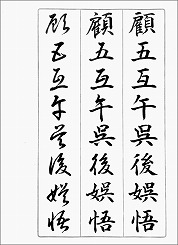 顧五互午呉後娯悟
顧五互午呉後娯悟
顧五互午呉後娯悟